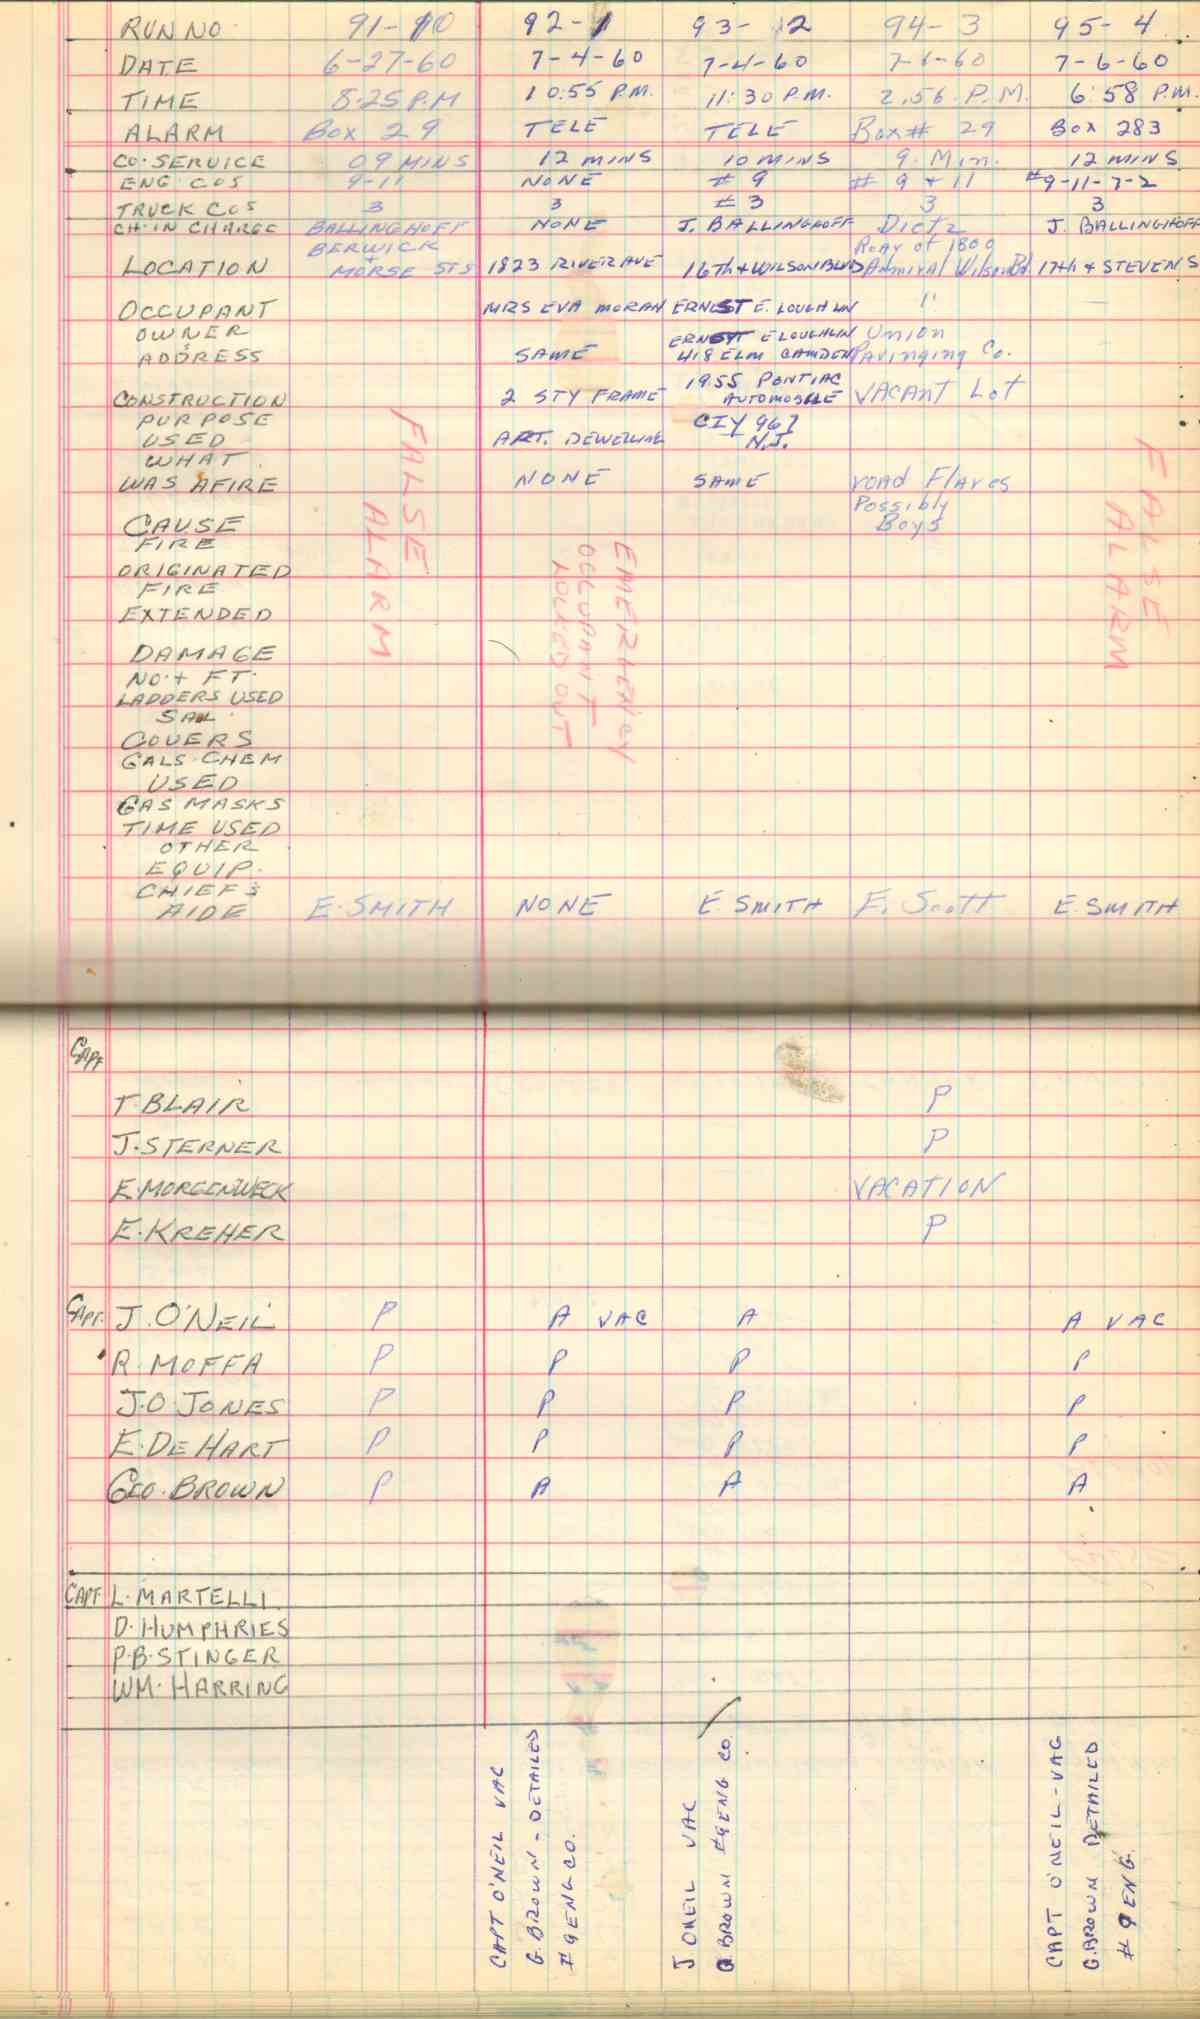 RUN NO 91-10 92-1 93-12 94-3 95-4
DATE 6-27-60 7-4-60 7-4-60 60 7-6-60
TIME 8:25 P.M 10:55 P.M. 11:30 P.M. 2.56 P.M. 6:58 P.M.
ALARM Box 29 TELE TELE Box # 29 BOX 283
CO. SERVICE 09 MINS 12 MINS 10 MINS 9. Min. 12 MINS
ENG COS 9-11 NONE # 9 # 9 + 11 #9-11-7-2
TRUCK COS 3 3 # 3 3 3
CH. IN CHARGE BALLINGHOFF NONE J. BALLINGHOFF Dietz J. BALLINGHOFF
BERWICK Rear of 1800
LOCATION + MORSE STS 1823 RIVER AVE 16TH + WILSON BLVD Admiral Wilson Bd. 17th & STEVENS
OCCUPANT MRS EVA MORAN ERNEST E. LOUGHLIN "
OWNER ERNEST E LOUGHLIN Union
ADDRESS SAME 418 ELM CAMDEN Pavinging Co.
CONSTRUCTION 2 STY FRAME 1955 PONTIAC AUTOMOBILE VACANT Lot
PURPOSE CIY 967
USED ART. DEWELLING N.J.
WHAT
WAS AFIRE NONE SAME road Flares
Possibly
CAUSE Boys
FIRE
ORIGINATED
FIRE
EXTENDED
FALSE
ALARM
EMERGENCY
OCCUPANT
LOCKED OUT
FALSE
ALARM
DAMAGE
NO. + FT.
LADDERS USED
SAL.
COVERS
GALS CHEM
USED
GAS MASKS
TIME USED
OTHER
EQUIP.
CHIEFS
AIDE E. SMITH NONE E. SMITH E. Scott E. SMITH
CAPT
T. BLAIR P
J. STERNER P
E. MORGENWECK VACATION
E. KREHER P
CAPT. J. O'NEIL P A VAC A A VAC
R. MOFFA P P P P
J.O JONES P P P P
E. DE HART P P P P
GEO. BROWN P A A A
CAPT L. MARTELLI
D. HUMPHRIES
P.B. STINGER
WM. HARRING
CAPT O'NEIL VAC
G. BROWN - DETAILED
#9 ENG CO.
J ONEIL VAC
G. BROWN #9 ENG CO.
CAPT O'NEIL - VAC
G. BROWN DETAILED
# 9 ENG.